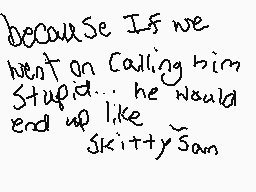 because If we
went on calling him
stupid... he would
end up like
skitty~sam